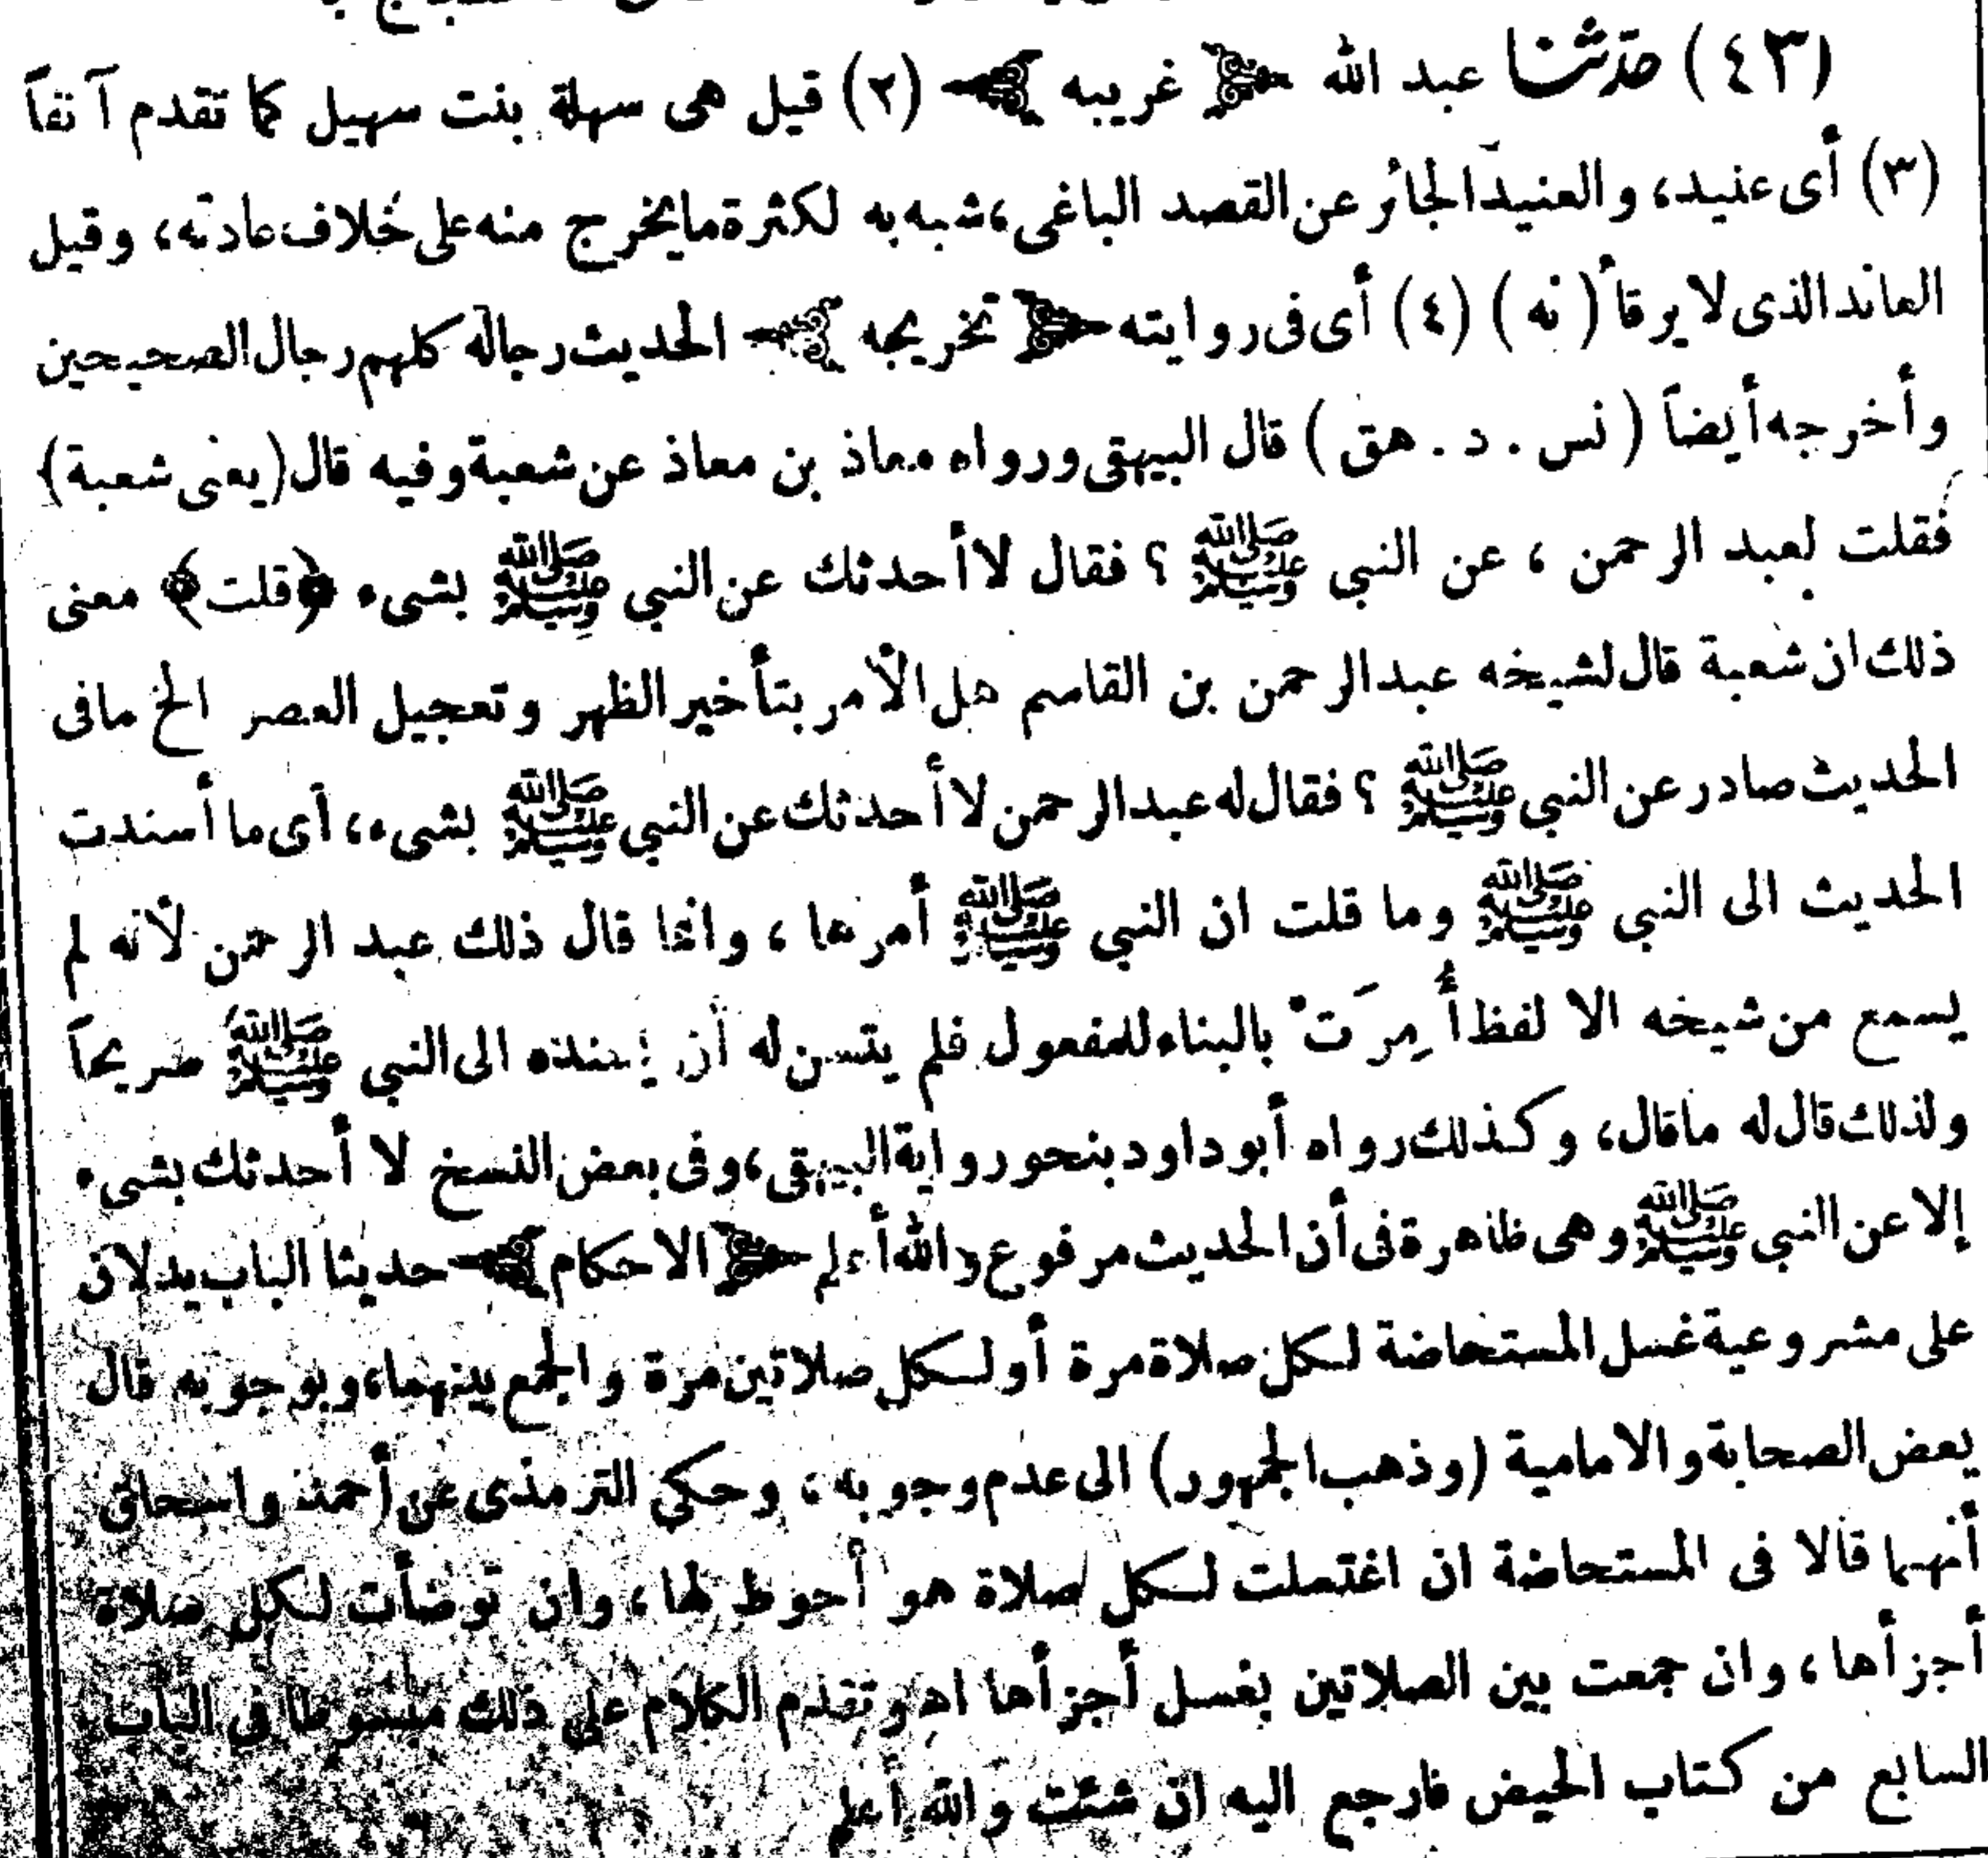 (٤٣) حدثنا عبد الله ﴿ غريبه ﴾ (٢) قيل هى سهلة بنت سهيل كما تقدم آنفاً
(٣) أى عنيد، والعنيد الجائر عن القصد الباغى، شبه به لكثرة ما يخرج منه على خلاف عادته، وقيل
العاند الذى لا يرقأ (نه) (٤) أى فى روايته ﴿ تخريجه ﴾ الحديث رجاله كلهم رجال الصحيحين
وأخرجه أيضاً (نس . د . هق) قال البيهقى ورواه معاذ بن معاذ عن شعبة وفيه قال (يعنى شعبة)
فقلت لعبد الرحمن ، عن النبي ﷺ ؟ فقال لا أحدثك عن النبي ﷺ بشىء ﴿قلت﴾ معنى
ذلك ان شعبة قال لشيخه عبد الرحمن بن القاسم هل الأمر بتأخير الظهر وتعجيل العصر الخ ما فى
الحديث صادر عن النبي ﷺ ؟ فقال له عبد الرحمن لا أحدثك عن النبي ﷺ بشىء، أى ما أسندت
الحديث الى النبي ﷺ وما قلت ان النبي ﷺ أمرها ، وانما قال ذلك عبد الرحمن لأنه لم
يسمع من شيخه الا لفظ أُمِرَتْ بالبناء للمفعول فلم يتسن له أن يسنده الى النبي ﷺ صريحاً
ولذلك قال له ما قال، وكذلك رواه أبو داود بنحو رواية البيهقى، وفى بعض النسخ لا أحدثك بشىء
إلا عن النبي ﷺ وهى ظاهرة فى أن الحديث مرفوع والله أعلم ﴿ الاحكام ﴾ حديثا الباب يدلان
على مشروعية غسل المستحاضة لكل صلاة مرة أو لكل صلاتين مرة والجمع بينهما، وبوجوبه قال
بعض الصحابة والامامية (وذهب الجمهور) الى عدم وجوبه ، وحكى الترمذى عن أحمد واسحاق
أنهما قالا فى المستحاضة ان اغتسلت لكل صلاة هو أحوط لها ، وان توضأت لكل صلاة
أجزأها ، وان جمعت بين الصلاتين بغسل أجزأها اهـ وتقدم الكلام على ذلك مبسوطا فى الباب
السابع من كتاب الحيض فارجع اليه ان شئت والله أعلم